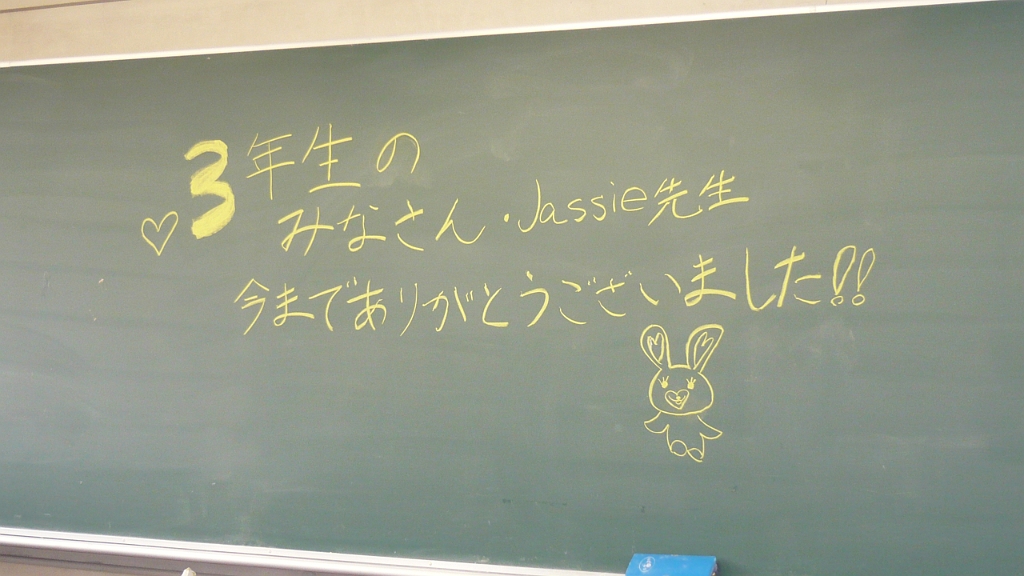 3年生の
みなさん・Jassie先生
今までありがとうございました!!